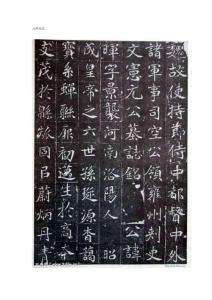 魏故使持節侍中都督中外
諸軍事司空公領雍州刺史
文憲元公墓誌銘 公諱
暉字景襲河南洛陽人昭
成皇帝之六世孫延源杳藹
寶系蟬聯厥初邈生於商
文茂於緜瓞固已蔚炳丹青